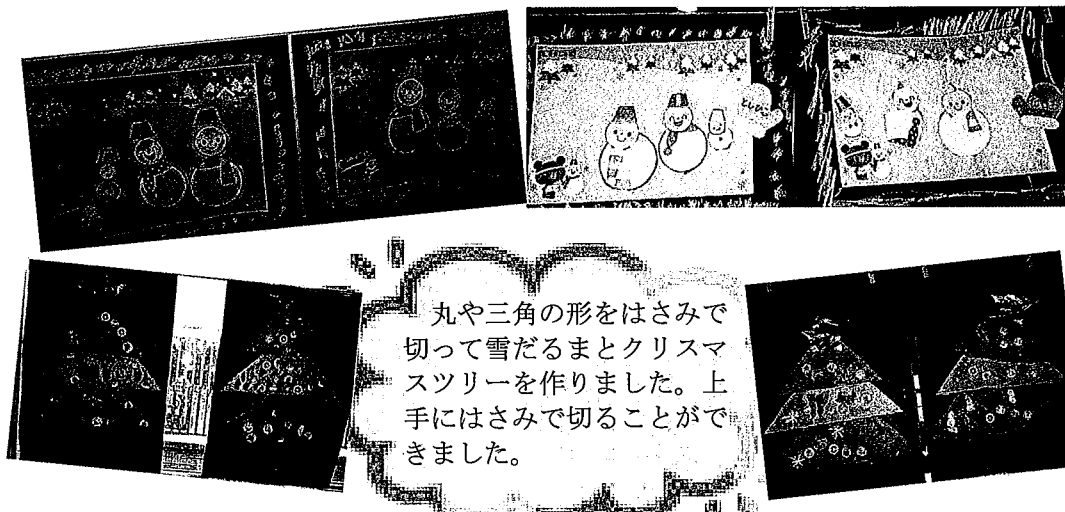 丸や三角の形をはさみで
切って雪だるまとクリスマ
スツリーを作りました。上
手にはさみで切ることがで
きました。